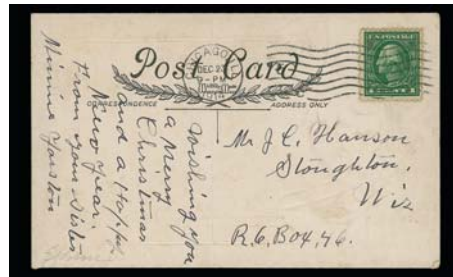 Post Card
CHICAGO
DEC 23
- PM
1914
U.S. POSTAGE
CORRESPONDENCE
ADDRESS ONLY
Wishing you
a Merry
Christmas
and a Happy
New Year.
From your Sister
Minnie
Mr J. C. Hanson
Stoughton,
Wis
R. 6, Box 46.